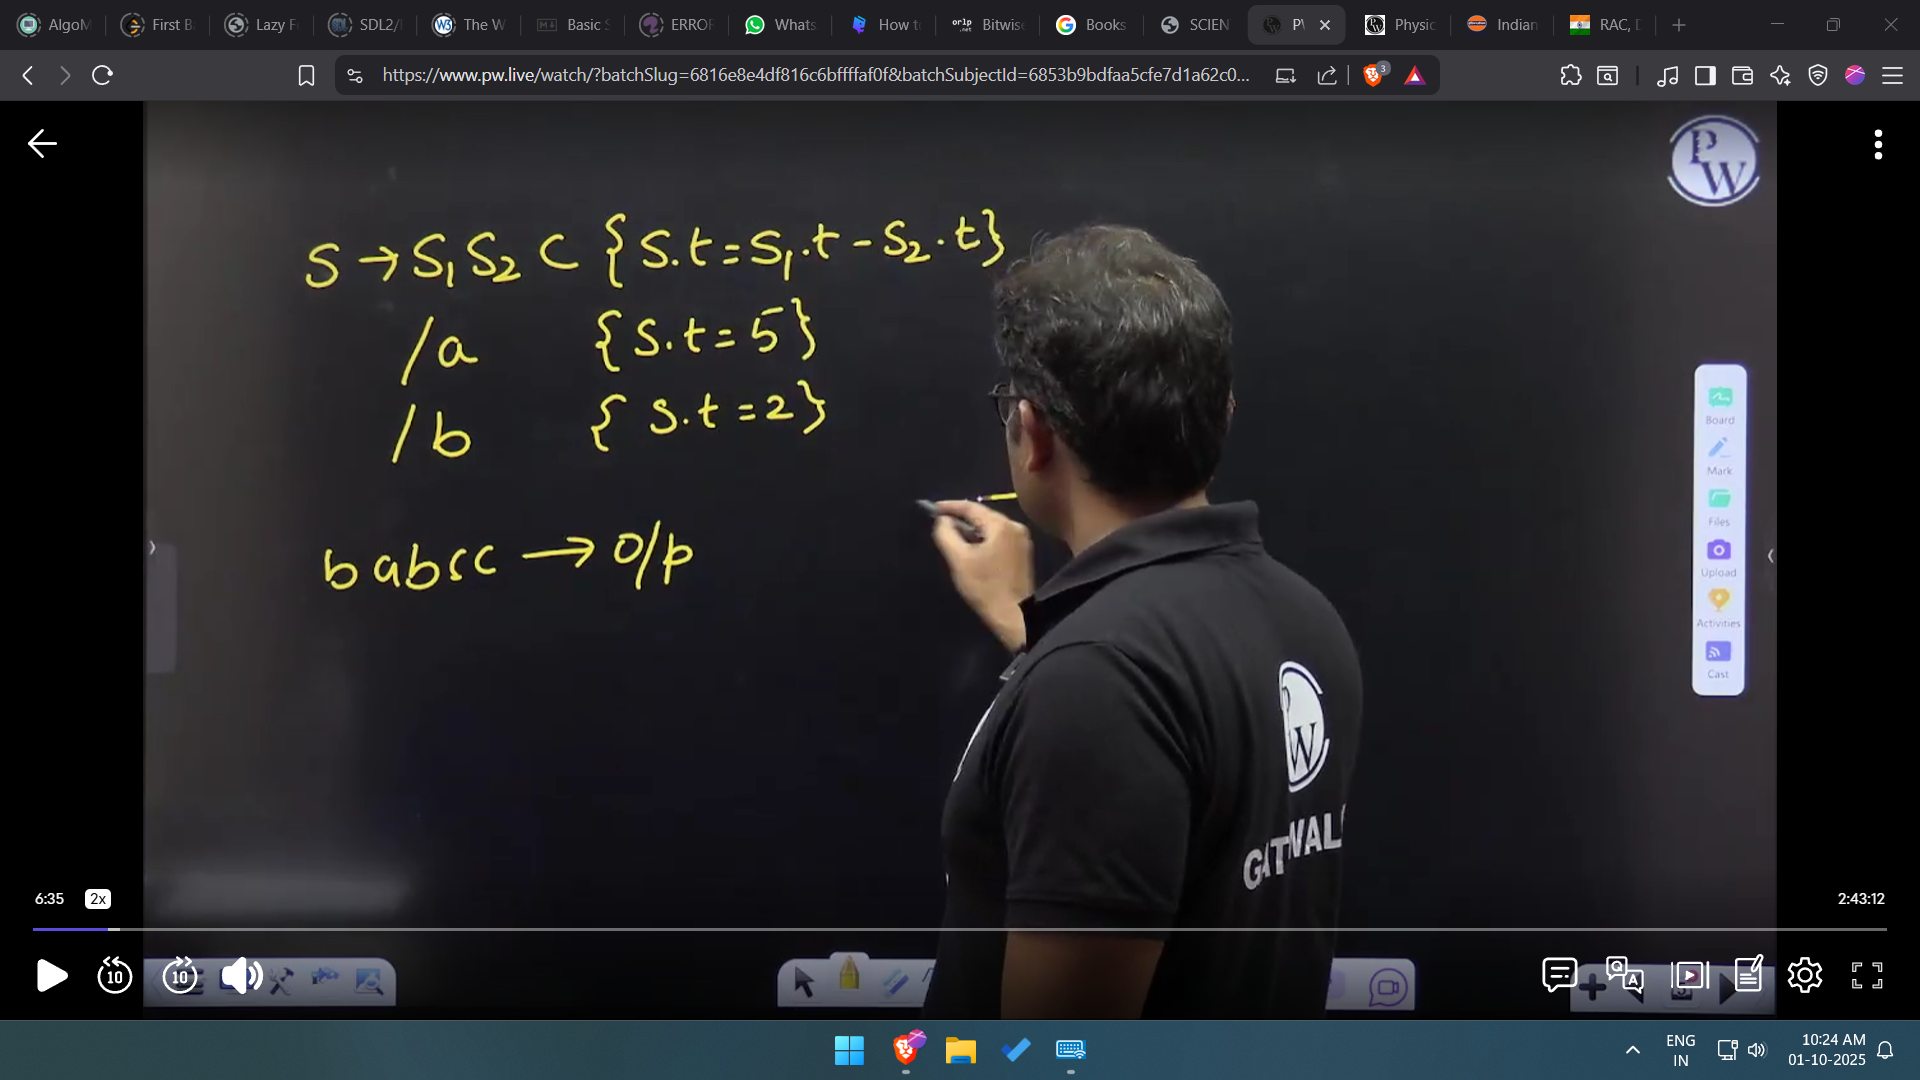 AlgoM
First B
Lazy F
SDL2/
The W
Basic S
ERROR
Whats
How to
Bitwise
Books
SCIEN
PW
Physic
Indian
RAC,
https://www.pw.live/watch/?batchSlug=6816e8e4df816c6bffffaf0f&batchSubjectId=6853b9bdfaa5cfe7d1a62c0...
3
PW
S → S₁ S₂ C {S.t = S₁.t - S₂.t}
/a {S.t = 5}
/b {S.t = 2}
babcc → O/p
Board
Mark
Files
Upload
Activities
Cast
W
6:35 2x
2:43:12
10 10
ENG
IN
10:24 AM
01-10-2025